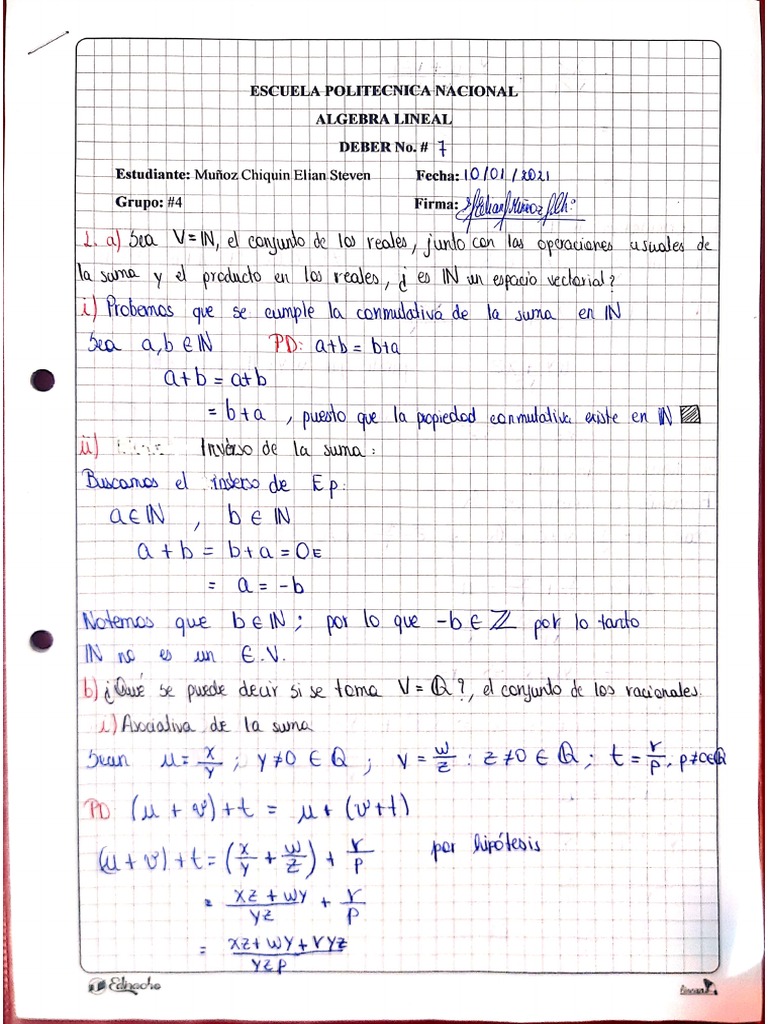 ESCUELA POLITECNICA NACIONAL
ALGEBRA LINEAL
DEBER No. # 7
Estudiante: Muñoz Chiquin Elian Steven Fecha: 10/01/2021
Grupo: #4 Firma:
1. a) Sea V=ℕ, el conjunto de los reales, junto con las operaciones usuales de
la suma y el producto en los reales, ¿ es ℕ un espacio vectorial?
i) Probemos que se cumple la conmulativa de la suma en ℕ
Sea a, b ∈ ℕ PD: a+b = b+a
a+b = a+b
= b+a , puesto que la propiedad conmulativa existe en ℕ
ii) Inverso de la suma:
Buscamos el inverso de E p:
a ∈ ℕ , b ∈ ℕ
a + b = b + a = 0E
= a = -b
Notemos que b ∈ ℕ ; por lo que -b ∈ ℤ por lo tanto
ℕ no es un E.V.
b) ¿Qué se puede decir si se toma V = ℚ?, el conjunto de los racionales.
i) Asociativa de la suma
Sean u = x/y ; y≠0 ∈ ℚ ; v = w/z : z≠0 ∈ ℚ ; t = r/p , p≠0∈ℚ
PD (u + v) + t = u + (v+t)
(u+v)+t = (x/y + w/z) + r/p por hipótesis
= xz + wy/yz + r/p
= xz + wy + ryz/yzp
Ednacho